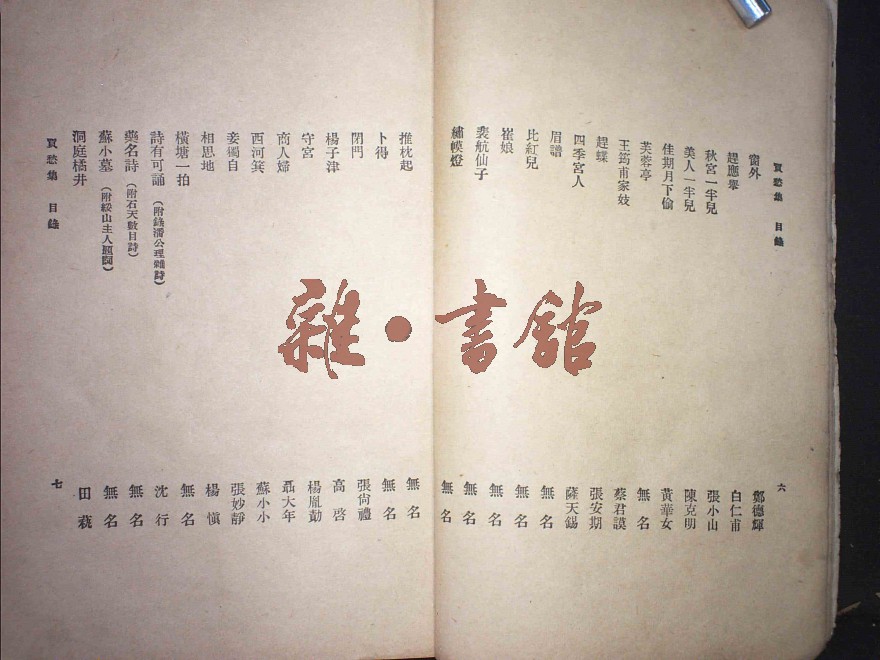 買愁集　目錄
六
窗外　鄭德輝
趕應舉　白仁甫
秋宮一半兒　張小山
美人一半兒　陳克明
佳期月下偷　黃華女
芙蓉亭　無名
王筠甫家妓　蔡君謨
趕蝶　張安期
四季宮人　薩天錫
眉譜　無名
比紅兒　無名
崔娘　無名
裴航仙子　無名
繡幙燈　無名
推枕起　無名
卜得　無名
閉門　張尙禮
楊子津　高啓
守宮　楊胤勣
商人婦　聶大年
西河箕　蘇小小
妾獨自　張妙靜
相思地　楊愼
橫塘一拍　無名
詩有可誦（附錄潘公理雜詩）　沈行
藥名詩（附石天數目詩）　無名
蘇小墓（附綏山主人題詞）　無名
洞庭橘井　田藝
買愁集　目錄
七
雜·書館